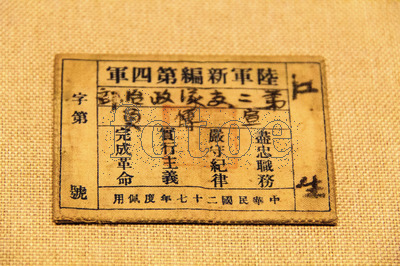 陸軍新編第四軍
第二支隊政治部
宣傳員
江
盡忠職務
嚴守紀律
實行主義
完成革命
字第 號
中華民國二十七年度佩用
fotoe